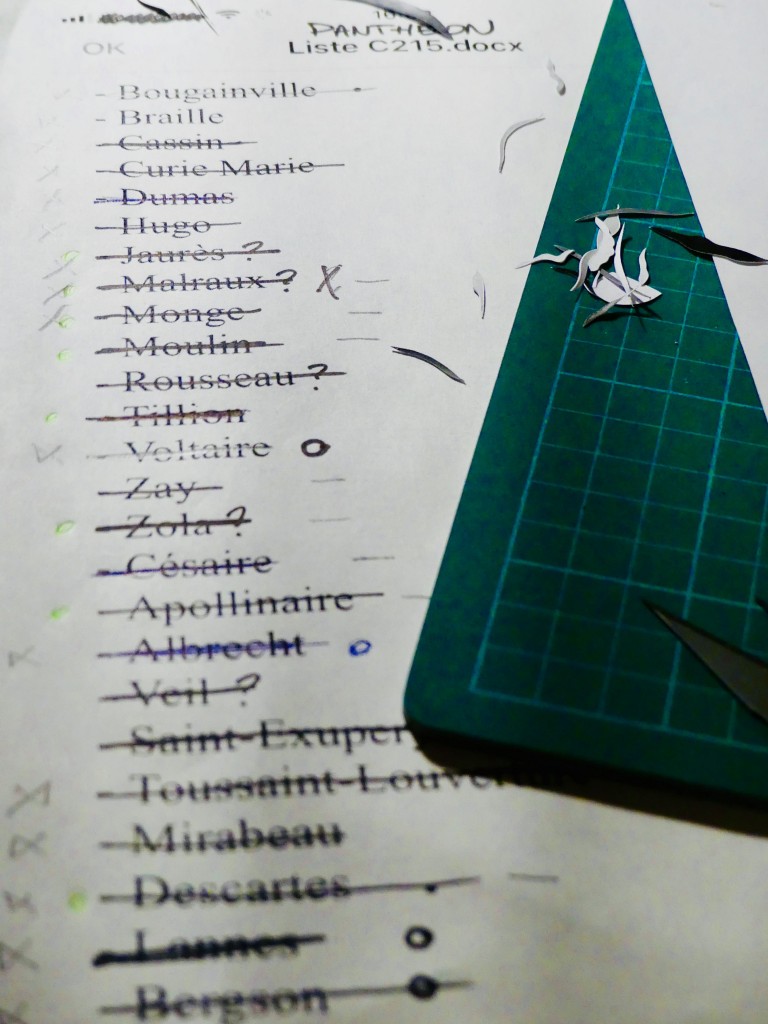 PANTHEON
OK Liste C215.docx
- Bougainville
- Braille
- Cassin
- Curie Marie
- Dumas
- Hugo
- Jaurès ?
- Malraux ? X
- Monge
- Moulin
- Rousseau ?
- Tillion
- Voltaire
- Zay
- Zola ?
- Césaire
- Apollinaire
- Albrecht
- Veil ?
- Saint-Exupery
- Toussaint-Louverture
- Mirabeau
- Descartes
- Lannes
- Bergson